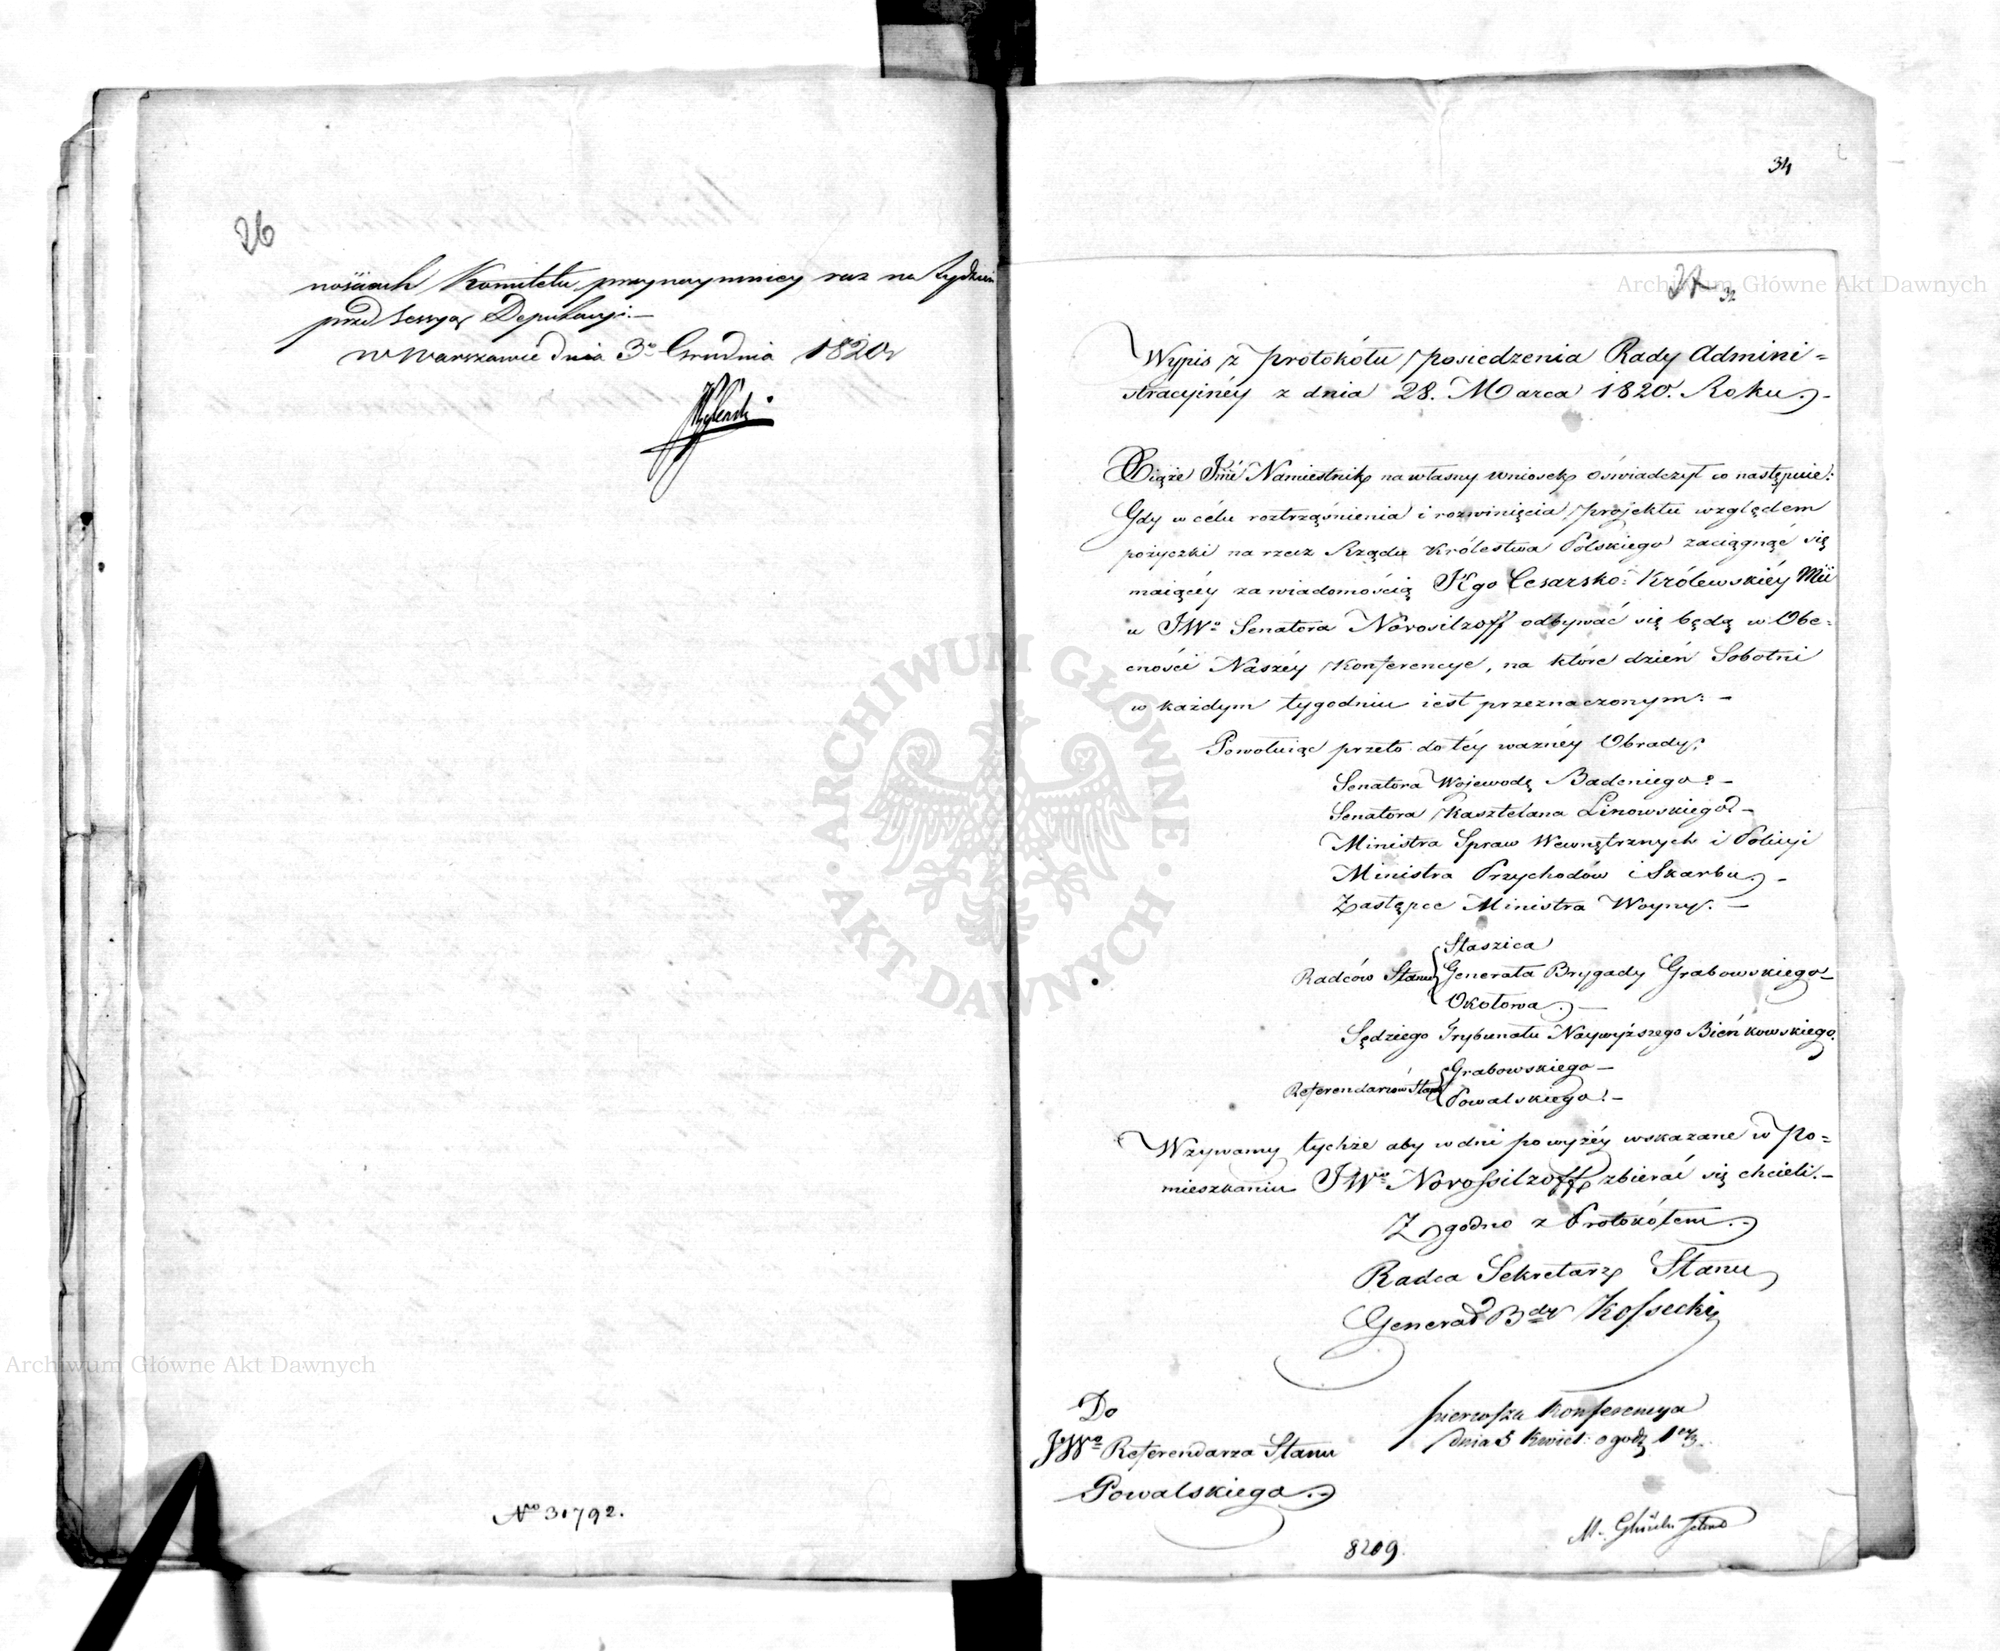 26
nościach Komitetu, przynaymniey raz na tydzień
przed Sessyą Deputacyi.—
w Warszawie dnia 3o Grudnia 1820r
No 31792.
34
Archiwum Główne Akt Dawnych
27
32
Wypis z protokółu posiedzenia Rady Admini=
stracyinéy z dnia 28. Marca 1820. Roku.—
Xiąże Jmć Namiestnik na własny wniosek oświadczył co następuie:
Gdy w célu roztrząśnienia i rozwinięcia projektu względem
pożyczki na rzecz Rządu Królestwa Polskiego zaciągnąć się
maiącéy za wiadomością Jego Cesarsko: Królewskiéy Mci
u JWo Senatora Novosilzoff odbywać się będą w Obe=
cności Naszéy Konferencye, na które dzień Sobotni
w każdym tygodniu iest przeznaczonym: —
Powołuiąc przeto do téy ważnéy Obrady;
Senatora Wojewodę Badeniego. —
Senatora Kasztelana Linowskiego —
Ministra Spraw Wewnętrznych i Policyi
Ministra Przychodów i Skarbu. —
Zastępce Ministra Woyny. —
Staszica
Radców Stanu Generała Brygady Grabowskiego —
Okołowa. —
Sędziego Trybunału Naywyższego Bieńkowskiego.
Grabowskiego —
Referendarzów Stanu
Powalskiego. —
Wzywamy tychże aby w dni powyżéy wskazane w Po=
mieszkaniu JWo Novossilzoff zbierać się chcieli. —
Zgodno z Protokółem.
Radca Sekretarz Stanu
Generał Bdy Kossecki
Do
JWo Referendarza Stanu
Powalskiego.
pierwsza Konferencya
dnia 8 Kwiet: o godz 1
8209.
ARCHIWUM GŁÓWNE
AKT DAWNYCH
Archiwum Główne Akt Dawnych